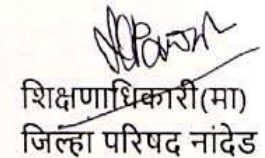 शिक्षणाधिकारी(मा)
जिल्हा परिषद नांदेड